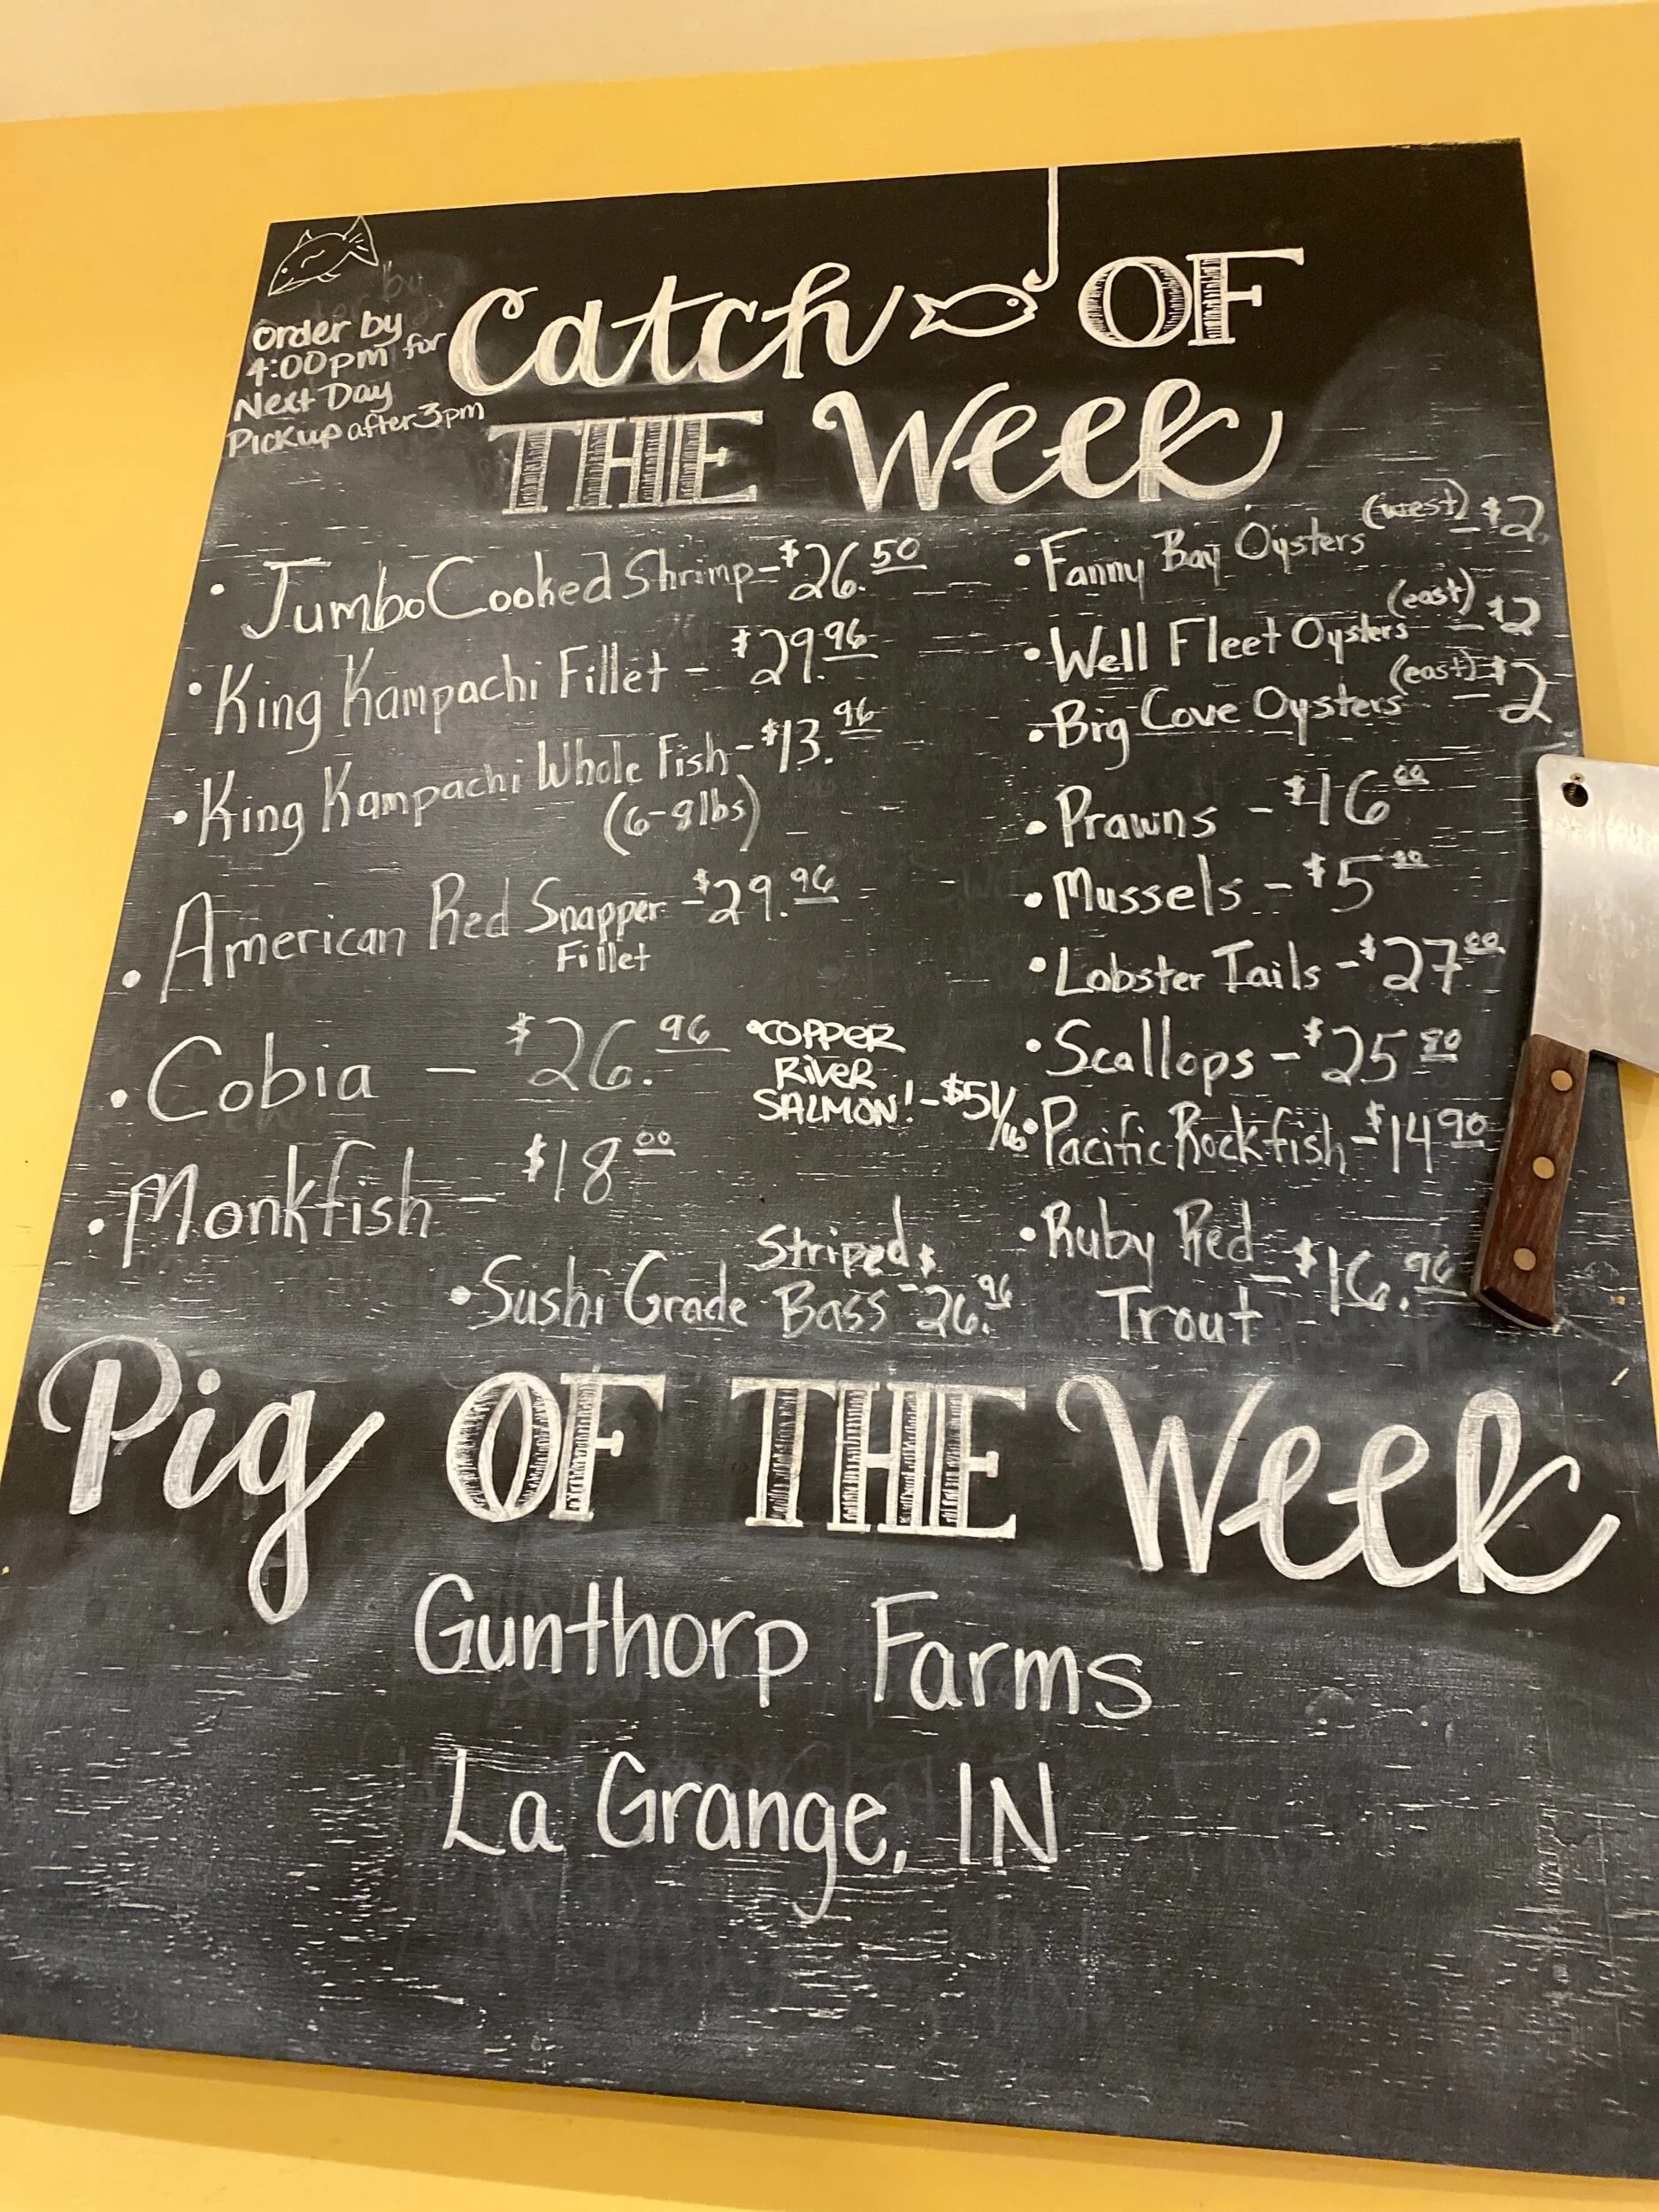 Order by
4:00pm for
Next Day
Pickup after 3pm
Catch OF
THE Week
• Jumbo Cooked Shrimp - $26.50
• King Kampachi Fillet - $29.96
• King Kampachi Whole Fish - $13.96
(6-8lbs)
• American Red Snapper - $29.96
Fillet
• Cobia - $26.96
• Monkfish - $18.00
• COPPER
RIVER
SALMON! - $51/lb
• Sushi Grade Striped
Bass - $26.96
• Fanny Bay Oysters (west) - $2
• Well Fleet Oysters (east) - $2
• Big Cove Oysters (east) - $2
• Prawns - $16.00
• Mussels - $5.00
• Lobster Tails - $27.00
• Scallops - $25.80
• Pacific Rockfish - $14.90
• Ruby Red
Trout - $16.96
Pig OF THE Week
Gunthorp Farms
La Grange, IN